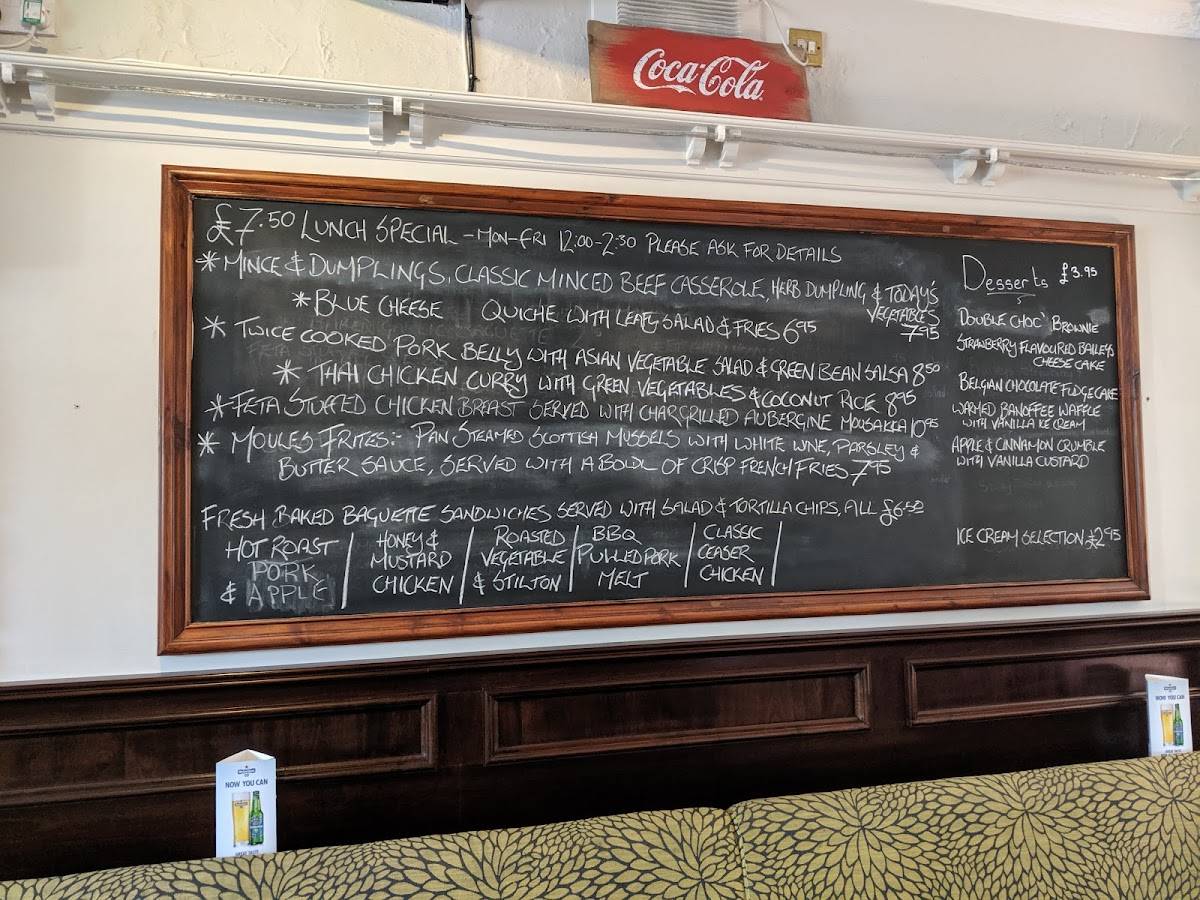 Coca-Cola
£7.50 LUNCH SPECIAL - MON-FRI 12:00-2:30 PLEASE ASK FOR DETAILS
* MINCE & DUMPLINGS, CLASSIC MINCED BEEF CASSEROLE, HERB DUMPLING & TODAY'S
VEGETABLES
7.95
* BLUE CHEESE QUICHE WITH LEAFY SALAD & FRIES 6.95
* TWICE COOKED PORK BELLY WITH ASIAN VEGETABLE SALAD & GREEN BEAN SALSA 8.50
* THAI CHICKEN CURRY WITH GREEN VEGETABLES & COCONUT RICE 8.95
* FETA STUFFED CHICKEN BREAST SERVED WITH CHARGRILLED AUBERGINE MOUSAKKA 10.95
* MOULES FRITES:- PAN STEAMED SCOTTISH MUSSELS WITH WHITE WINE, PARSLEY &
BUTTER SAUCE, SERVED WITH A BOWL OF CRISP FRENCH FRIES 7.95
FRESH BAKED BAGUETTE SANDWICHES SERVED WITH SALAD & TORTILLA CHIPS, ALL £6.50
HOT ROAST
PORK
& APPLE
HONEY &
MUSTARD
CHICKEN
ROASTED
VEGETABLE
& STILTON
BBQ
PULLED PORK
MELT
CLASSIC
CEASER
CHICKEN
Desserts £3.95
DOUBLE CHOC' BROWNIE
STRAWBERRY FLAVOURED BAILEYS
CHEESE CAKE
BELGIAN CHOCOLATE FUDGECAKE
WARMED BANOFFEE WAFFLE
WITH VANILLA ICE CREAM
APPLE & CINNAMON CRUMBLE
WITH VANILLA CUSTARD
ICE CREAM SELECTION £2.95
NOW YOU CAN
NOW YOU CAN